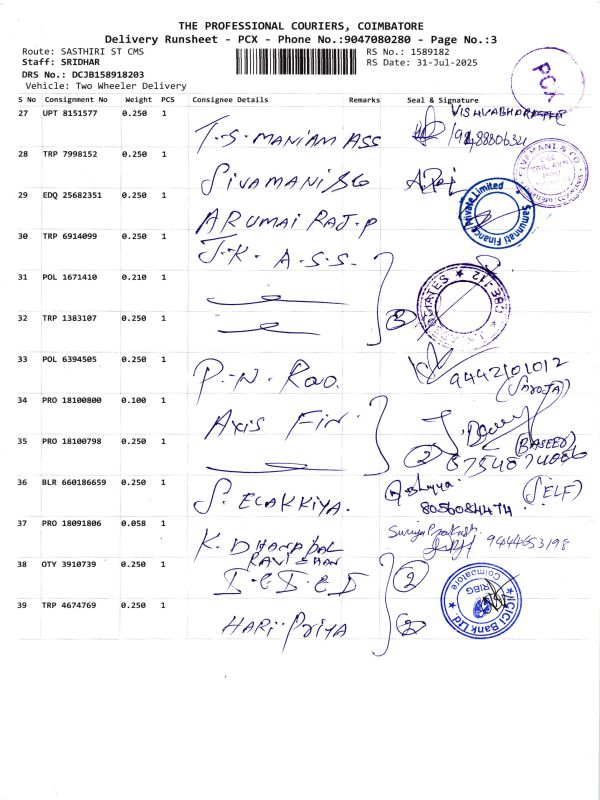 THE PROFESSIONAL COURIERS, COIMBATORE
Delivery Runsheet - PCX - Phone No.:9047080280 - Page No.:3
Route: SASTHIRI ST CMS
RS No.: 1589182
Staff: SRIDHAR
RS Date: 31-Jul-2025
DRS No.: DCJB158918203
Vehicle: Two Wheeler Delivery
PCX
S No Consignment No Weight PCS Consignee Details Remarks Seal & Signature
27 UPT 8151577 0.250 1 T.S. MANIAM ASS
28 TRP 7998152 0.250 1 SIVAMANI &CO
SIVAMANI & CO.
29 EDQ 25682351 0.250 1 ARUMAI RAJ.P
Samunnati Finance Private Limited
30 TRP 6914099 0.250 1 J.K. A.S.S.
31 POL 1671410 0.210 1
32 TRP 1383107 0.250 1 3
33 POL 6394505 0.250 1 P.N. Rao. 9442101012
(SAROJA)
34 PRO 18100800 0.100 1 Axis Fin
35 PRO 18100798 0.250 1 2 (BASEER)
8754874086
36 BLR 660186659 0.250 1 S. ELAKKIYA. (SELF)
8056084474
37 PRO 18091806 0.058 1 K. DHANAPAL Suriya Prakash 9444653198
38 OTY 3910739 0.250 1 2
39 TRP 4674769 0.250 1 HARI PRIYA 2
ICICI Bank Ltd. RIBG Coimbatore